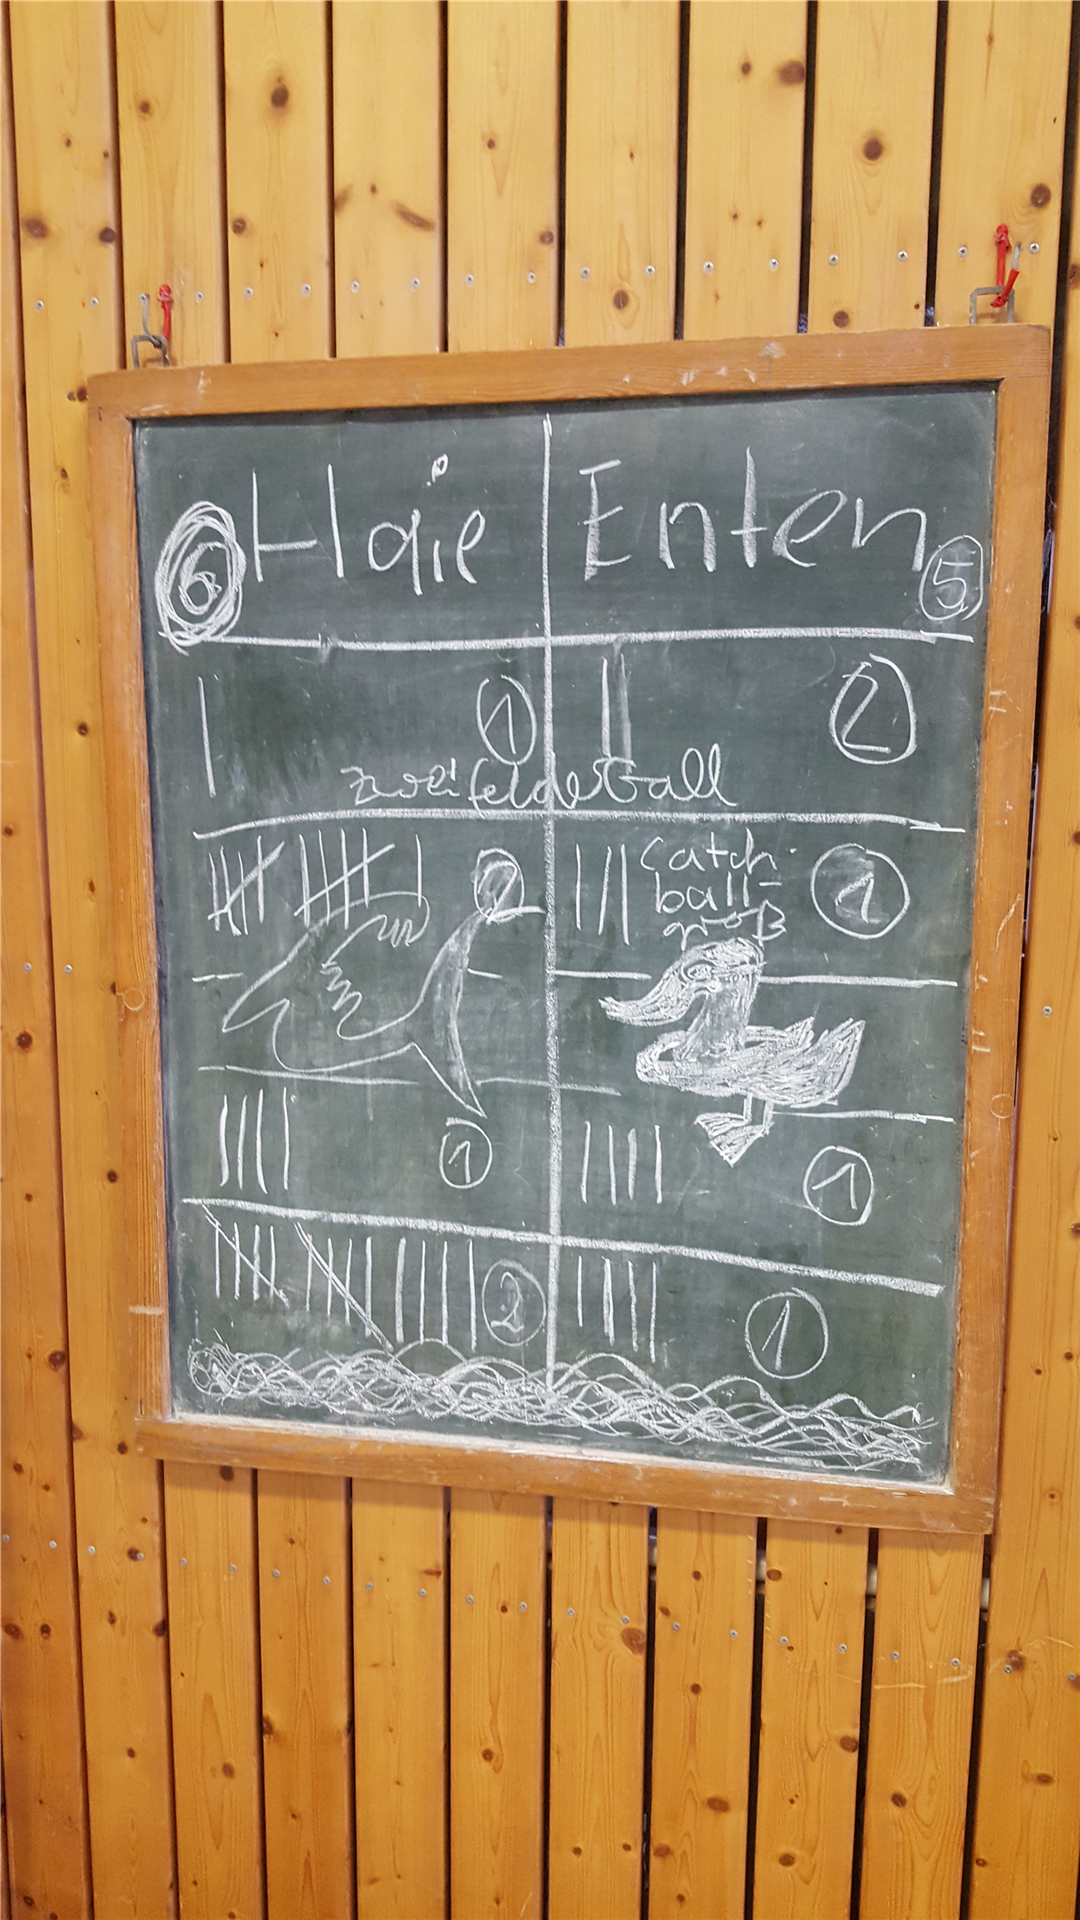 6 Haie Enten 5
1 2
zweifelderball
2 catch-
ball- 1
groß
1 1
2 1